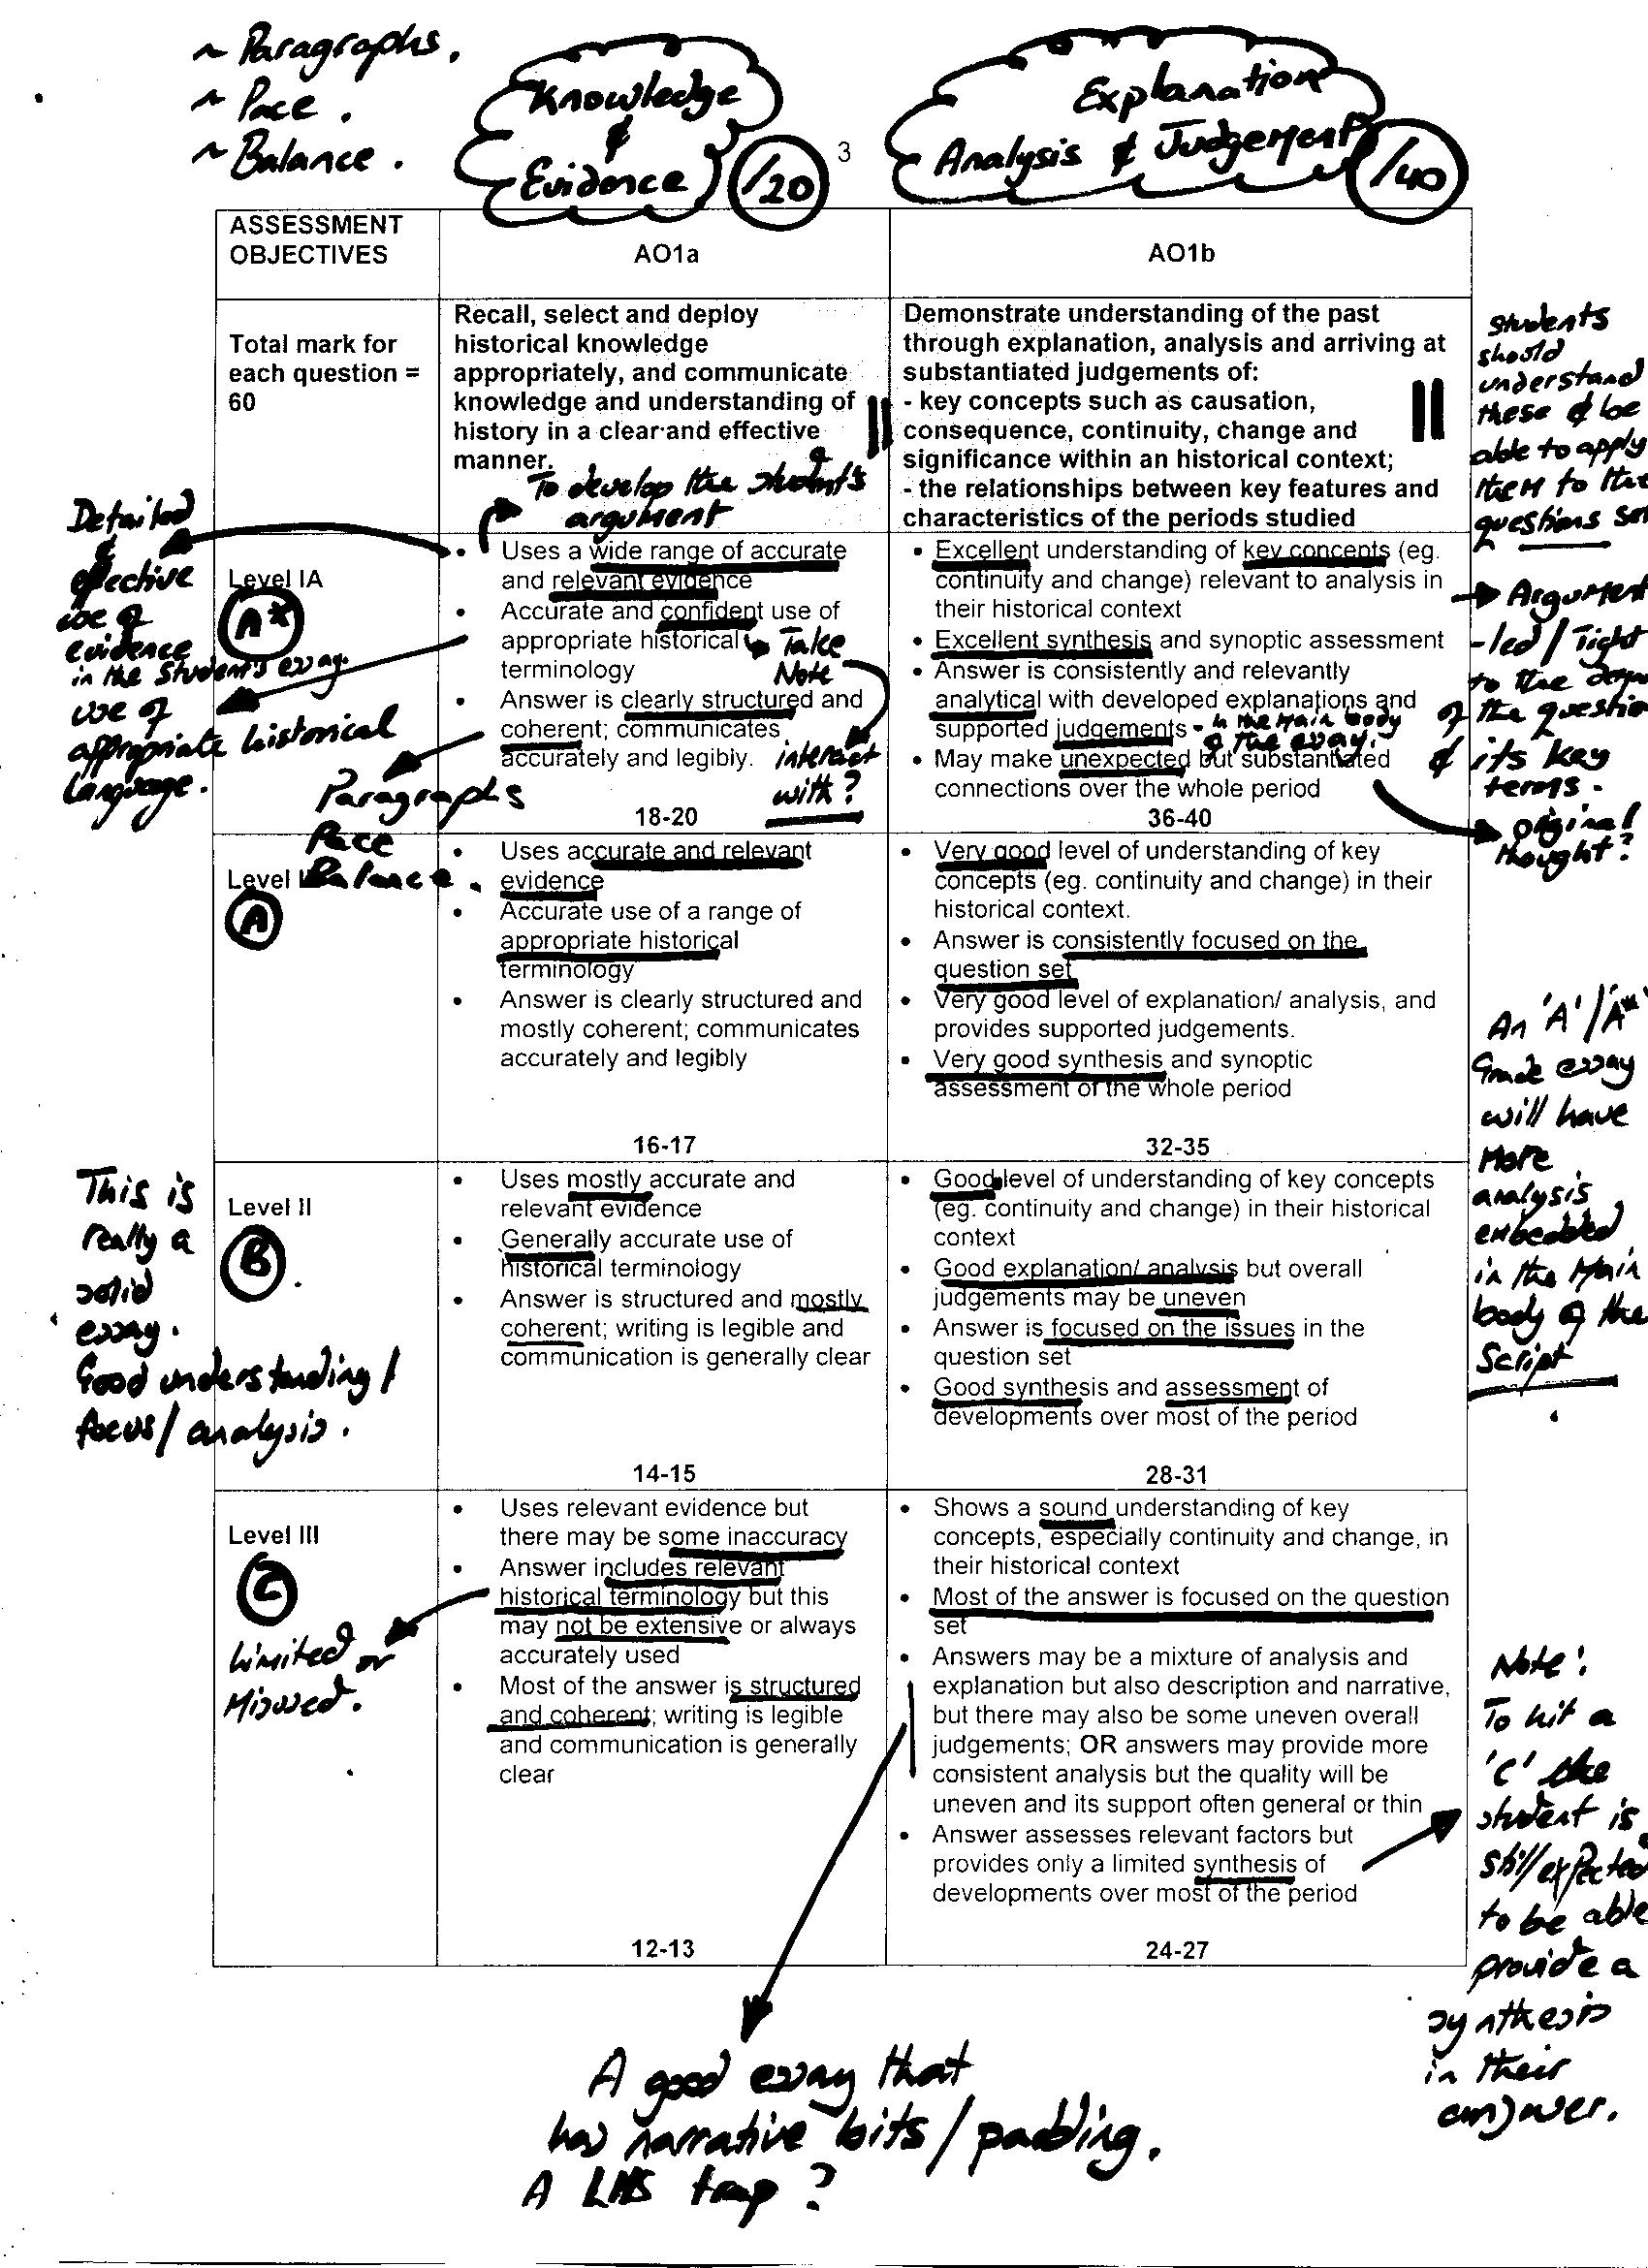 ~ Paragraphs.
~ Pace.
~ Balance.
Knowledge
&
Evidence
/20
3
Explanation
Analysis & Judgement
/40
ASSESSMENT
OBJECTIVES
AO1a
AO1b
Total mark for
each question =
60
Recall, select and deploy
historical knowledge
appropriately, and communicate
knowledge and understanding of
history in a clear and effective
manner.
To develop the student's
argument
Demonstrate understanding of the past
through explanation, analysis and arriving at
substantiated judgements of:
- key concepts such as causation,
consequence, continuity, change and
significance within an historical context;
- the relationships between key features and
characteristics of the periods studied
Students
should
understand
these & be
able to apply
them to the
questions set
Detailed
&
effective
use of
evidence
in the student's essay.
use of
appropriate historical
language.
Level IA
A*
• Uses a wide range of accurate
and relevant evidence
• Accurate and confident use of
appropriate historical
terminology
• Answer is clearly structured and
coherent; communicates
accurately and legibly.
18-20
Take
Note
interact
with?
Paragraphs
Pace
Balance.
• Excellent understanding of key concepts (eg.
continuity and change) relevant to analysis in
their historical context
• Excellent synthesis and synoptic assessment
• Answer is consistently and relevantly
analytical with developed explanations and
supported judgements - in the main body
of the essay.
• May make unexpected but substantiated
connections over the whole period
36-40
Argument
-led / Tight
to the
of the question
& its key
terms.
original
thought?
Level
A
• Uses accurate and relevant
evidence
• Accurate use of a range of
appropriate historical
terminology
• Answer is clearly structured and
mostly coherent; communicates
accurately and legibly
16-17
• Very good level of understanding of key
concepts (eg. continuity and change) in their
historical context.
• Answer is consistently focused on the
question set
• Very good level of explanation/ analysis, and
provides supported judgements.
• Very good synthesis and synoptic
assessment of the whole period
32-35
An 'A'/A*'
Grade essay
will have
more
analysis
embedded
in the main
body of the
Script
This is
really a
solid
essay.
Good understanding/
focus/analysis.
Level II
B
• Uses mostly accurate and
relevant evidence
• Generally accurate use of
historical terminology
• Answer is structured and mostly
coherent; writing is legible and
communication is generally clear
14-15
• Good level of understanding of key concepts
(eg. continuity and change) in their historical
context
• Good explanation/ analysis but overall
judgements may be uneven
• Answer is focused on the issues in the
question set
• Good synthesis and assessment of
developments over most of the period
28-31
Level III
C
Limited or
Misused.
• Uses relevant evidence but
there may be some inaccuracy
• Answer includes relevant
historical terminology but this
may not be extensive or always
accurately used
• Most of the answer is structured
and coherent; writing is legible
and communication is generally
clear
12-13
• Shows a sound understanding of key
concepts, especially continuity and change, in
their historical context
• Most of the answer is focused on the question
set
• Answers may be a mixture of analysis and
explanation but also description and narrative,
but there may also be some uneven overall
judgements; OR answers may provide more
consistent analysis but the quality will be
uneven and its support often general or thin
• Answer assesses relevant factors but
provides only a limited synthesis of
developments over most of the period
24-27
Note:
To hit a
'C' the
student is
still expected
to be able
provide a
synthesis
in their
answer.
A good essay that
has narrative bits/padding.
A LMS trap?